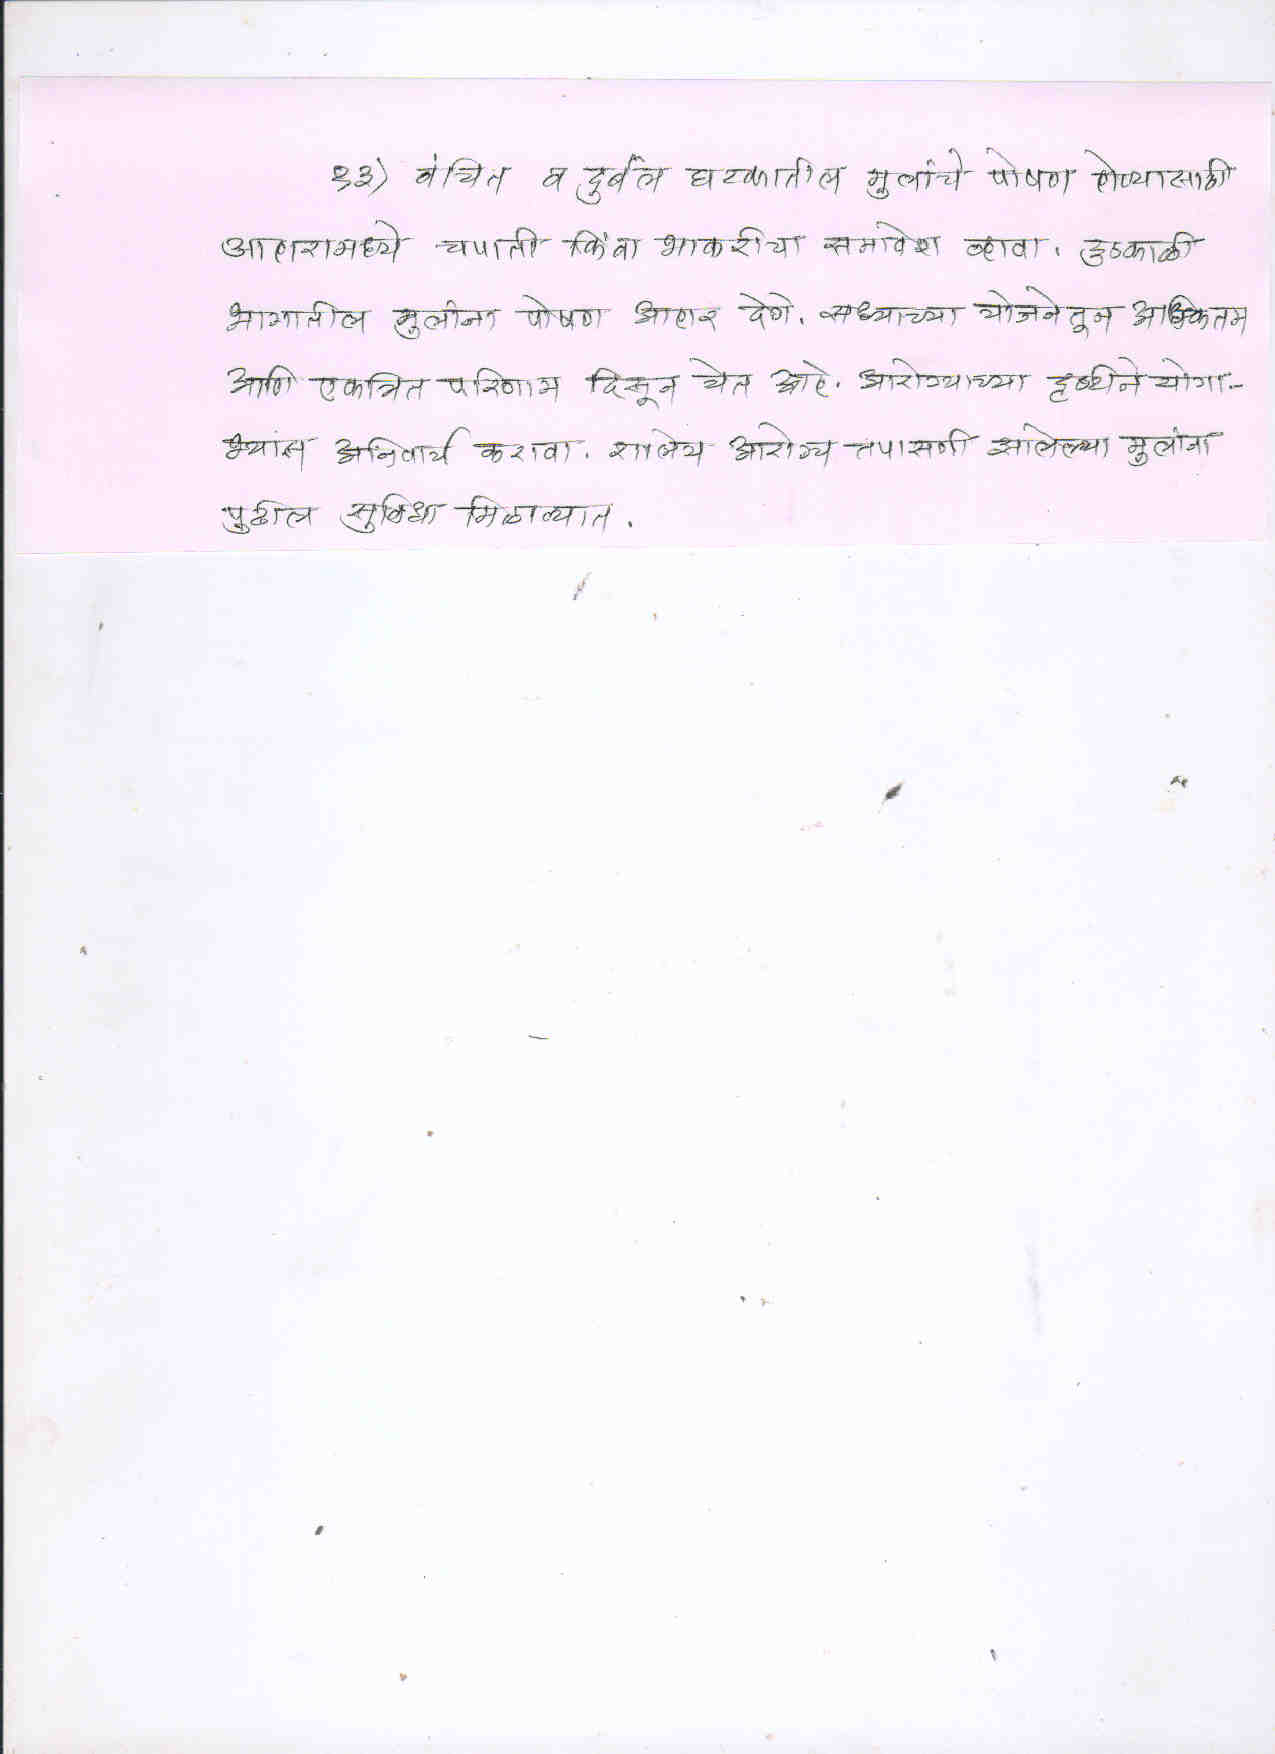 १३) वंचित व दुर्बल घटकातील मुलांचे पोषण होण्यासाठी
आहारामध्ये चपाती किंवा भाकरीचा समावेश व्हावा. दुष्काळी
भागातील मुलांना पोषण आहार देणे. सध्याच्या योजनेतून
आणि एकत्रित परिणाम दिसून येत आहे. आरोग्याच्या दृष्टीने योगा-
भ्यास अनिवार्य करावा. शालेय आरोग्य तपासणी झालेल्या मुलांना
पुढील सुविधा मिळाव्यात.